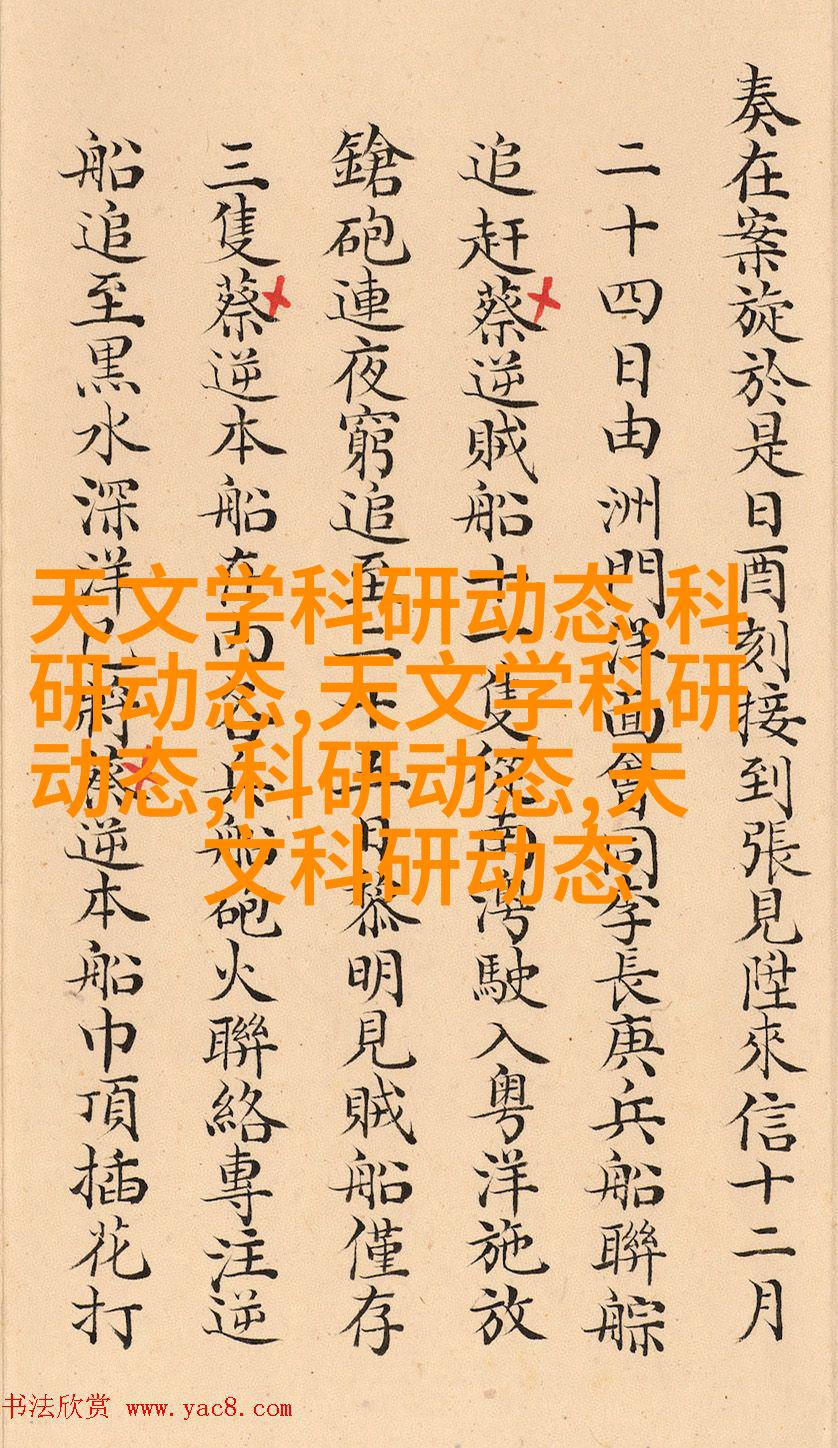 奏在案旋於是日酉刻接到張見陞來信十二月
二十四日由洲門洋面會同李長庚兵船聯䑸
追赶蔡逆賊船十一隻從南灣駛入粵洋施放
鎗砲連夜窮追至二十五日黎明見賊船僅存
三隻蔡逆本船在內各兵船砲火聯絡專注逆
船追至黒水深洋已將蔡逆本船巾頂插花打
天文学科研动态,科
研动态,天文学科研
动态,科研动态,天
文科研动态
书法欣赏 www.yac8.com